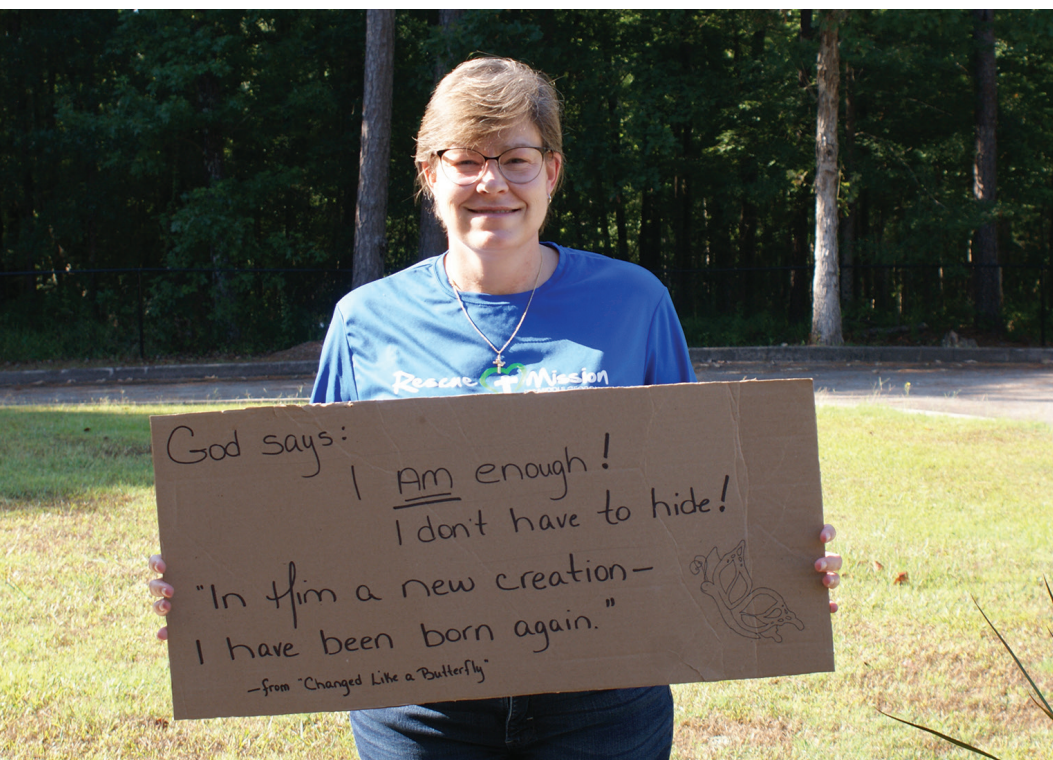 Rescue Mission
God says:
I AM enough!
I don't have to hide!
"In Him a new creation—
I have been born again."
—from "Changed Like a Butterfly"